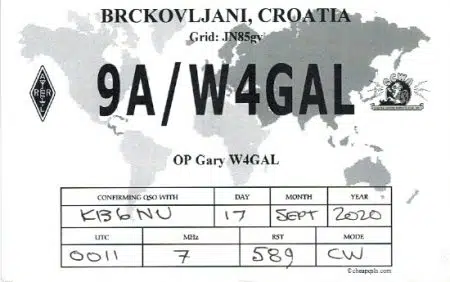 BRCKOVLJANI, CROATIA
Grid: JN85gv
9A/W4GAL
OP Gary W4GAL
CONFIRMING QSO WITH DAY MONTH YEAR
KB6NU 17 SEPT 2020
UTC MHz RST MODE
0011 7 589 CW
© cheapqsls.com